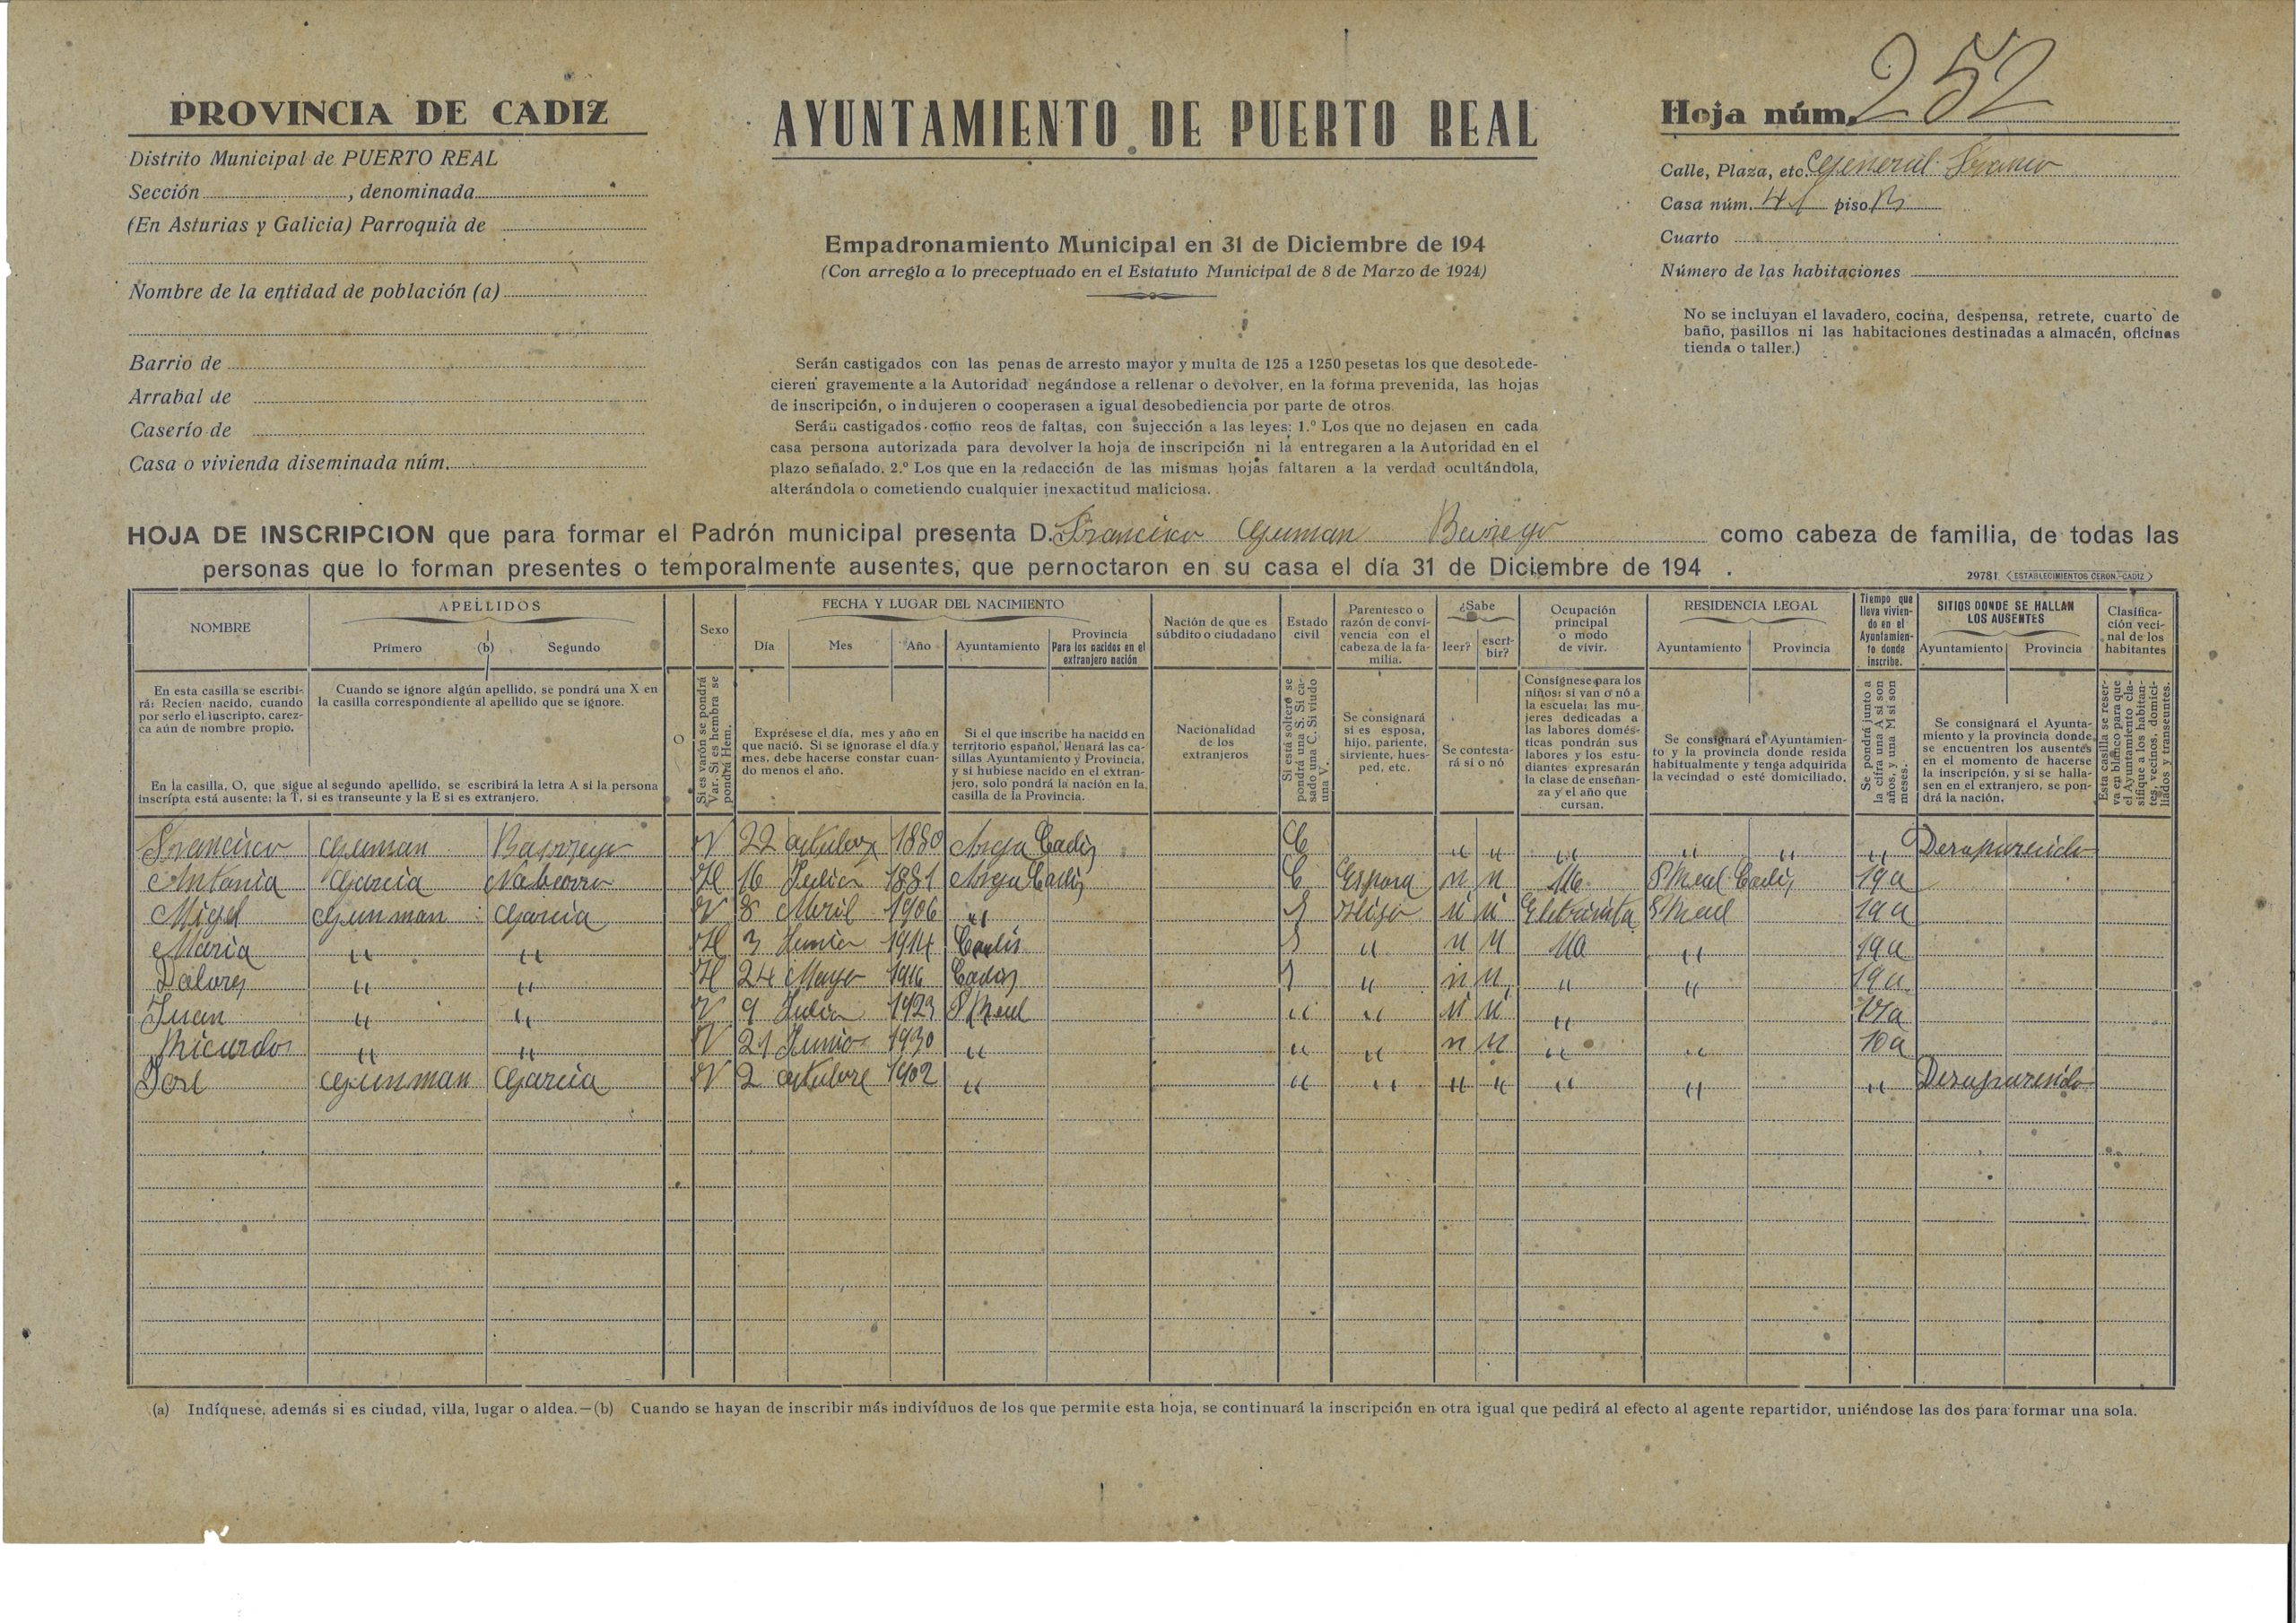 PROVINCIA DE CADIZ
Distrito Municipal de PUERTO REAL
Sección , denominada
(En Asturias y Galicia) Parroquia de
Nombre de la entidad de población (a)
Barrio de
Arrabal de
Caserío de
Casa o vivienda diseminada núm.
AYUNTAMIENTO DE PUERTO REAL
Empadronamiento Municipal en 31 de Diciembre de 194
(Con arreglo a lo preceptuado en el Estatuto Municipal de 8 de Marzo de 1924)
Serán castigados con las penas de arresto mayor y multa de 125 a 1250 pesetas los que desobede-
cieren gravemente a la Autoridad negándose a rellenar o devolver, en la forma prevenida, las hojas
de inscripción, o indujeren o cooperasen a igual desobediencia por parte de otros.
Serán castigados como reos de faltas, con sujección a las leyes: 1.º Los que no dejasen en cada
casa persona autorizada para devolver la hoja de inscripción ni la entregaren a la Autoridad en el
plazo señalado. 2.º Los que en la redacción de las mismas hojas faltaren a la verdad ocultándola,
alterándola o cometiendo cualquier inexactitud maliciosa.
Hoja núm. 252
Calle, Plaza, etc. General Franco
Casa núm. 41 piso B
Cuarto
Número de las habitaciones
No se incluyan el lavadero, cocina, despensa, retrete, cuarto de
baño, pasillos ni las habitaciones destinadas a almacén, oficinas
tienda o taller.)
HOJA DE INSCRIPCION que para formar el Padrón municipal presenta D. Francisco Guman Barrego como cabeza de familia, de todas las
personas que lo forman presentes o temporalmente ausentes, que pernoctaron en su casa el día 31 de Diciembre de 194 .
29781 ESTABLECIMIENTOS CERON.-CADIZ
NOMBRE
APELLIDOS
Primero (b) Segundo
Sexo
FECHA Y LUGAR DEL NACIMIENTO
Día Mes Año Ayuntamiento
Provincia
Para los nacidos en el
extranjero nación
Nación de que es
súbdito o ciudadano
Estado
civil
Parentesco o
razón de convi-
vencia con el
cabeza de la fa-
milia.
¿Sabe
leer? escri-
bir?
Ocupación
principal
o modo
de vivir.
RESIDENCIA LEGAL
Ayuntamiento Provincia
Tiempo que
lleva vivien-
do en el
Ayuntamien-
to donde
inscribe.
SITIOS DONDE SE HALLAN
LOS AUSENTES
Ayuntamiento Provincia
Clasifica-
ción veci-
nal de los
habitantes
En esta casilla se escribi-
rá: Recien nacido, cuando
por serlo el inscripto, carez-
ca aún de nombre propio.
Cuando se ignore algún apellido, se pondrá una X en
la casilla correspondiente al apellido que se ignore.
En la casilla, O, que sigue al segundo apellido, se escribirá la letra A si la persona
inscripta está ausente; la T, si es transeunte y la E si es extranjero.
O
Si es varón se pondrá
Var. Si es hembra se
pondrá Hem.
Exprésese el día, mes y año en
que nació. Si se ignorase el día y
mes, debe hacerse constar cuan-
do menos el año.
Si el que inscribe ha nacido en
territorio español, llenará las ca-
sillas Ayuntamiento y Provincia,
y si hubiese nacido en el extran-
jero, solo pondrá la nación en la
casilla de la Provincia.
Nacionalidad
de los
extranjeros
Si está soltero se
pondrá una S. Si ca-
sado una C. Si viudo
una V.
Se consignará
si es esposa,
hijo, pariente,
sirviente, hues-
ped, etc.
Se contesta-
rá si o nó
Consígnese para los
niños: si van o nó a
la escuela: las mu-
jeres dedicadas a
las labores domés-
ticas pondrán sus
labores y los estu-
diantes expresarán
la clase de enseñan-
za y el año que
cursan.
Se consignará el Ayuntamien-
to y la provincia donde resida
habitualmente y tenga adquirida
la vecindad o esté domiciliado.
Se pondrá junto a
la cifra una A si son
años, y una M si son
meses.
Se consignará el Ayunta-
miento y la provincia donde
se encuentren los ausentes
en el momento de hacerse
la inscripción, y si se halla-
sen en el extranjero, se pon-
drá la nación.
Esta casilla se reser-
va en blanco para que
el Ayuntamiento cla-
sifique a los habitan-
tes, vecinos, domici-
liados y transeuntes.
Francisco Guman Barrego V 22 octubre 1880 Cadiz C " " " " " " Desaparecido
Antonia Garcia Nabarro H 16 Julio 1881 Cadiz C Esposa n n P Real Cadiz 19 a
Migel Gunman Garcia V 8 Abril 1906 " S Hijo P Real 19 a
Maria " " H 3 Junio 1914 Cadis S " " 19 a
Dolores " " H 24 Mayo 1916 Cadiz S " n n " " 19 a
Juan " " V 9 Julio 1923 P Real " " " 17 a
Ricardo " " V 21 Junio 1930 " " " n n " " 10 a
José Gunman Garcia V 2 octubre 1902 " " " " " " " " Desaparesido
(a) Indíquese, además si es ciudad, villa, lugar o aldea.—(b) Cuando se hayan de inscribir más indivíduos de los que permite esta hoja, se continuará la inscripción en otra igual que pedirá al efecto al agente repartidor, uniéndose las dos para formar una sola.